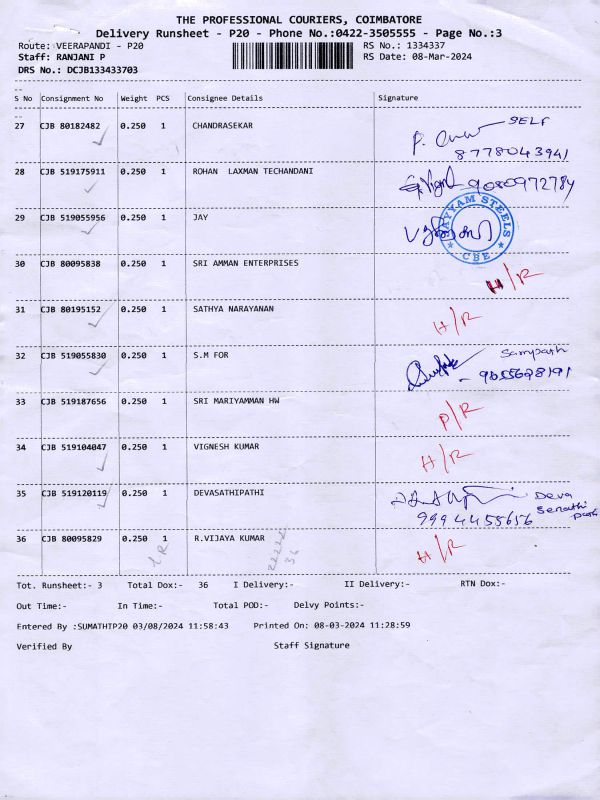 THE PROFESSIONAL COURIERS, COIMBATORE
Delivery Runsheet - P20 - Phone No.:0422-3505555 - Page No.:3
Route: VEERAPANDI - P20 RS No.: 1334337
Staff: RANJANI P RS Date: 08-Mar-2024
DRS No.: DCJB133433703
S No Consignment No Weight PCS Consignee Details Signature
27 CJB 80182482 0.250 1 CHANDRASEKAR SELF
8778043941
28 CJB 519175911 0.250 1 ROHAN LAXMAN TECHANDANI 9080972784
29 CJB 519055956 0.250 1 JAY AYYAM STEELS CBE
30 CJB 80095838 0.250 1 SRI AMMAN ENTERPRISES H/R
31 CJB 80195152 0.250 1 SATHYA NARAYANAN H/R
32 CJB 519055830 0.250 1 S.M FOR Sampath
33 CJB 519187656 0.250 1 SRI MARIYAMMAN HW P/R
34 CJB 519104047 0.250 1 VIGNESH KUMAR H/R
35 CJB 519120119 0.250 1 DEVASATHIPATHI Deva
9994455656
36 CJB 80095829 0.250 1 R.VIJAYA KUMAR H/R
36
Tot. Runsheet:- 3 Total Dox:- 36 I Delivery:- II Delivery:- RTN Dox:-
Out Time:- In Time:- Total POD:- Delvy Points:-
Entered By :SUMATHIP20 03/08/2024 11:58:43 Printed On: 08-03-2024 11:28:59
Verified By Staff Signature